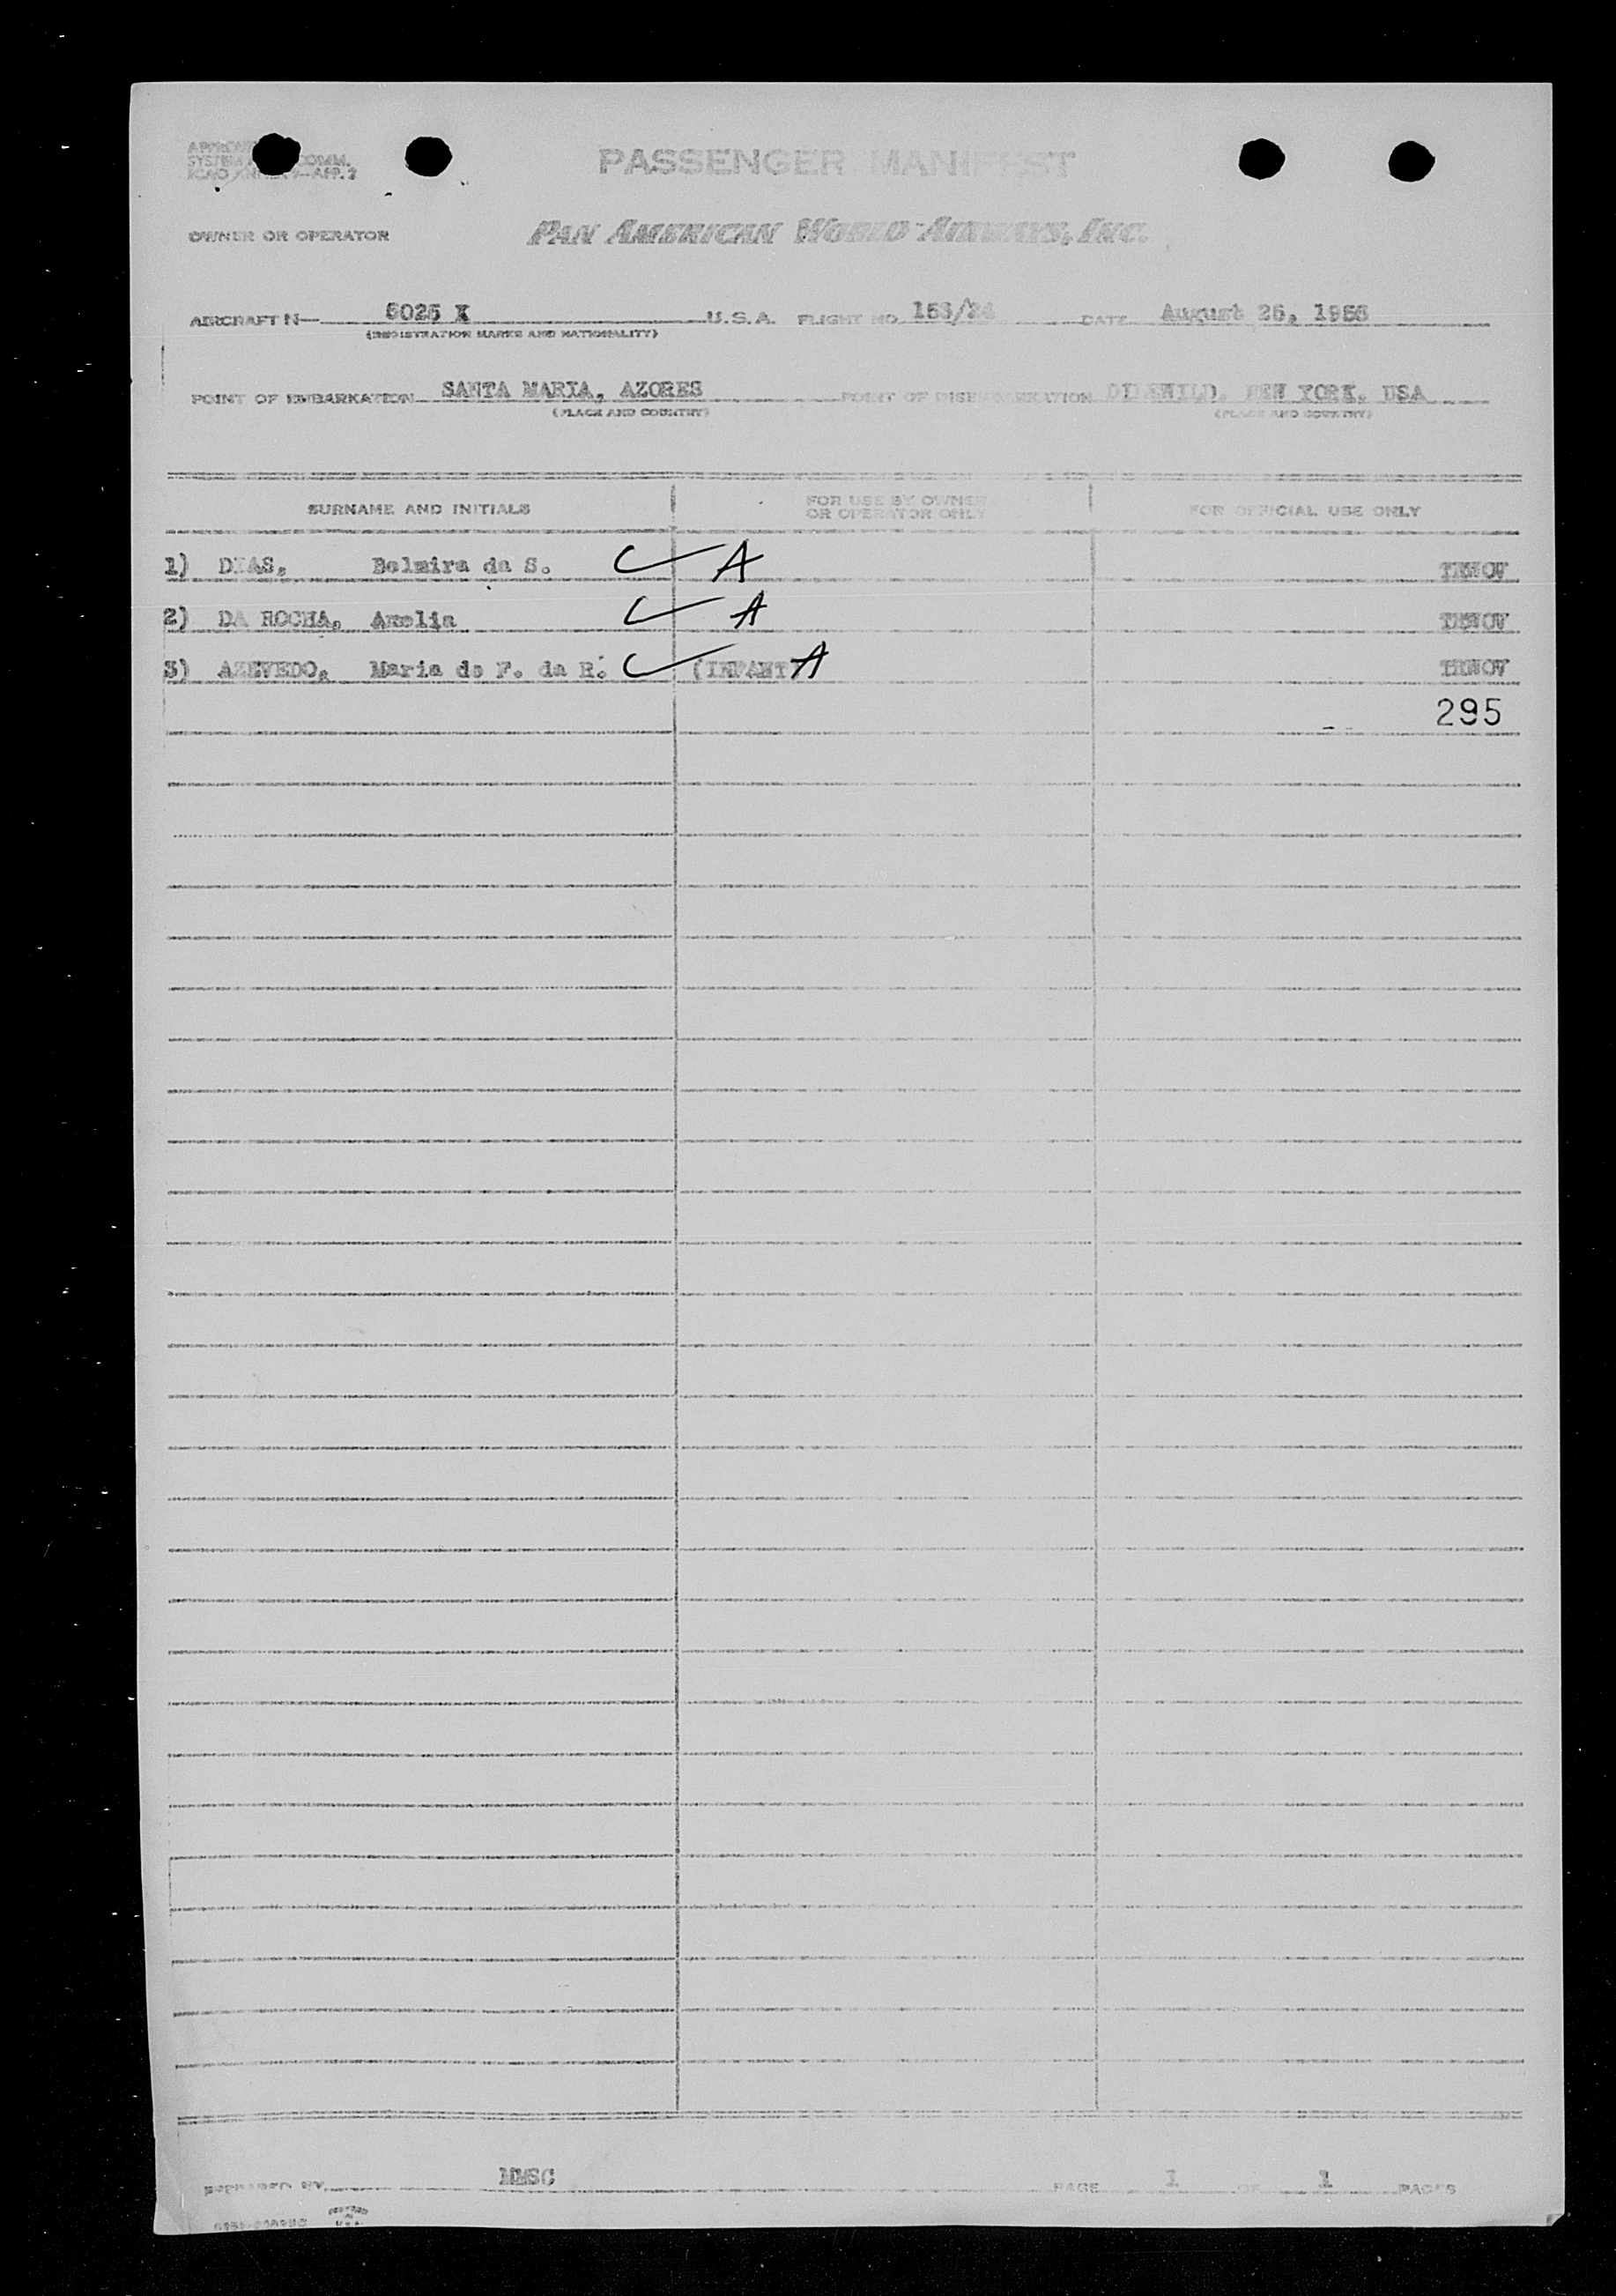 PASSENGER MANIFEST
OWNER OR OPERATOR PAN AMERICAN WORLD AIRWAYS, INC.
AIRCRAFT N— 6025 X U.S.A. FLIGHT NO. DATE August
(REGISTRATION MARKS AND NATIONALITY)
POINT OF EMBARKATION SANTA MARIA, AZORES POINT OF DISEMBARKATION IDLEWILD, NEW YORK, USA
(PLACE AND COUNTRY) (PLACE AND COUNTRY)
SURNAME AND INITIALS FOR USE BY OWNER OR OPERATOR ONLY FOR OFFICIAL USE ONLY
1) DIAS, Belmira da S. A TRNOV
2) DA ROCHA, Amelia A TRNOV
3) AZEVEDO, Maria de F. da R. (INFANT) A TRNOV
295
PREPARED BY PAGE 1 OF 1 PAGES